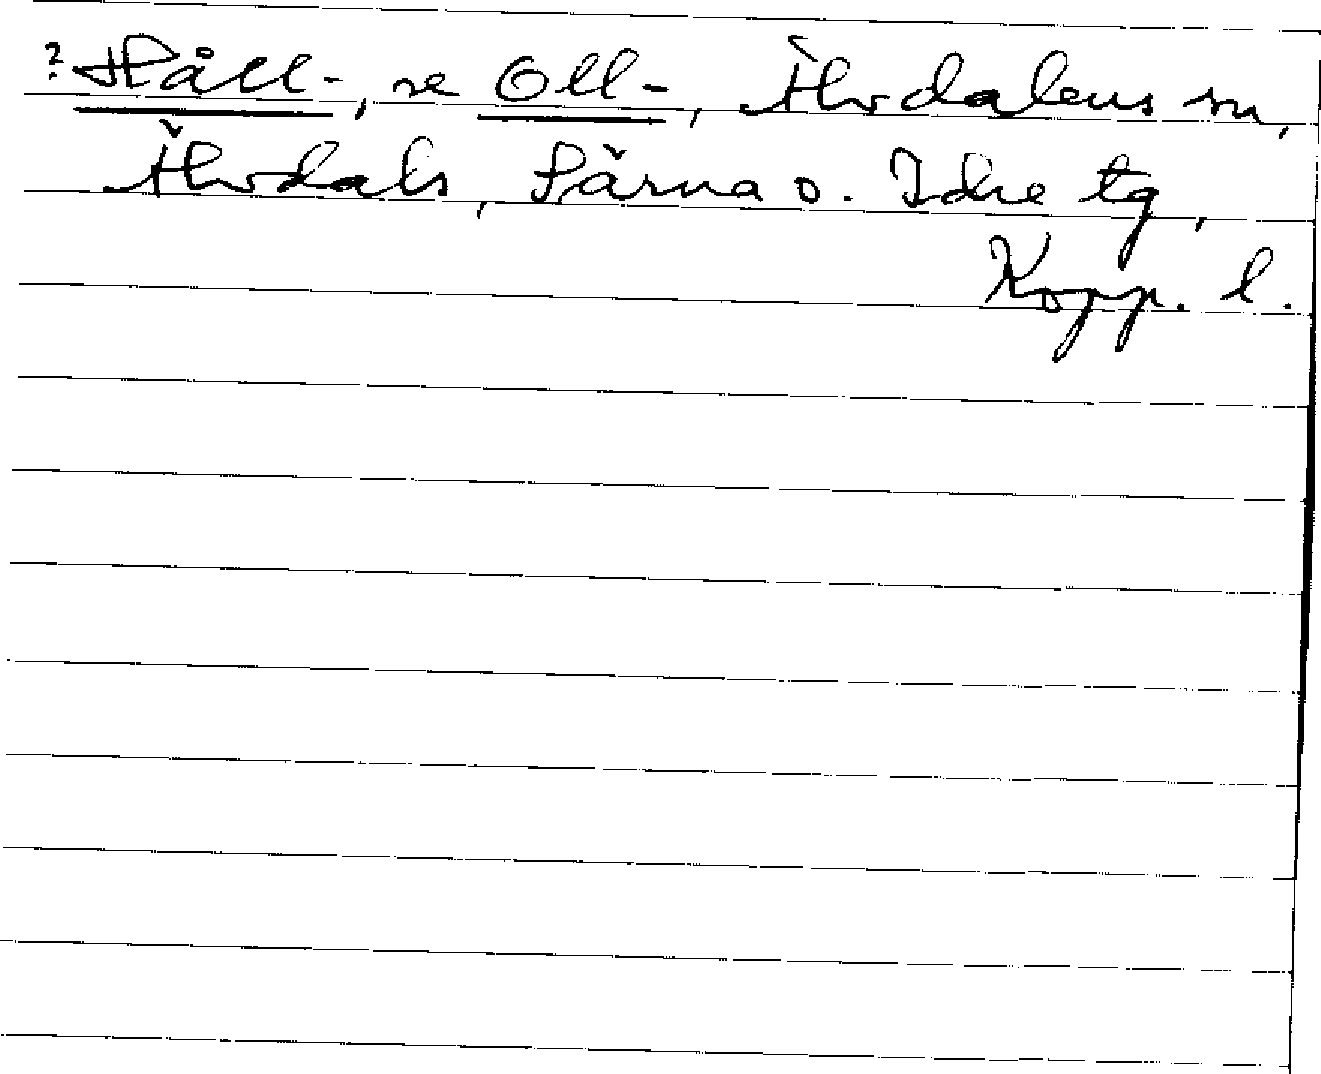 ? Håll-, se Oll-, Älvdalens sn,
Älvdals, Särna o. Idre tg,
Kopp. l.